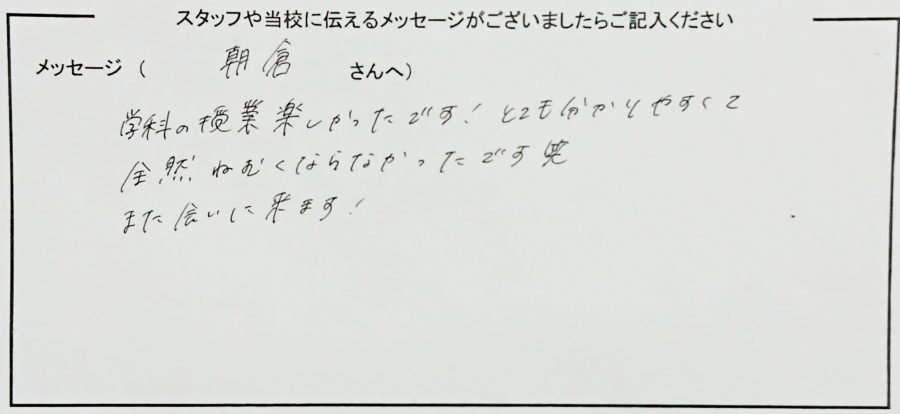 スタッフや当校に伝えるメッセージがございましたらご記入ください
メッセージ（ 朝倉 さんへ）
学科の授業楽しかったです！とても分かりやすくて
全然ねむくならなかったです笑
また会いに来ます！